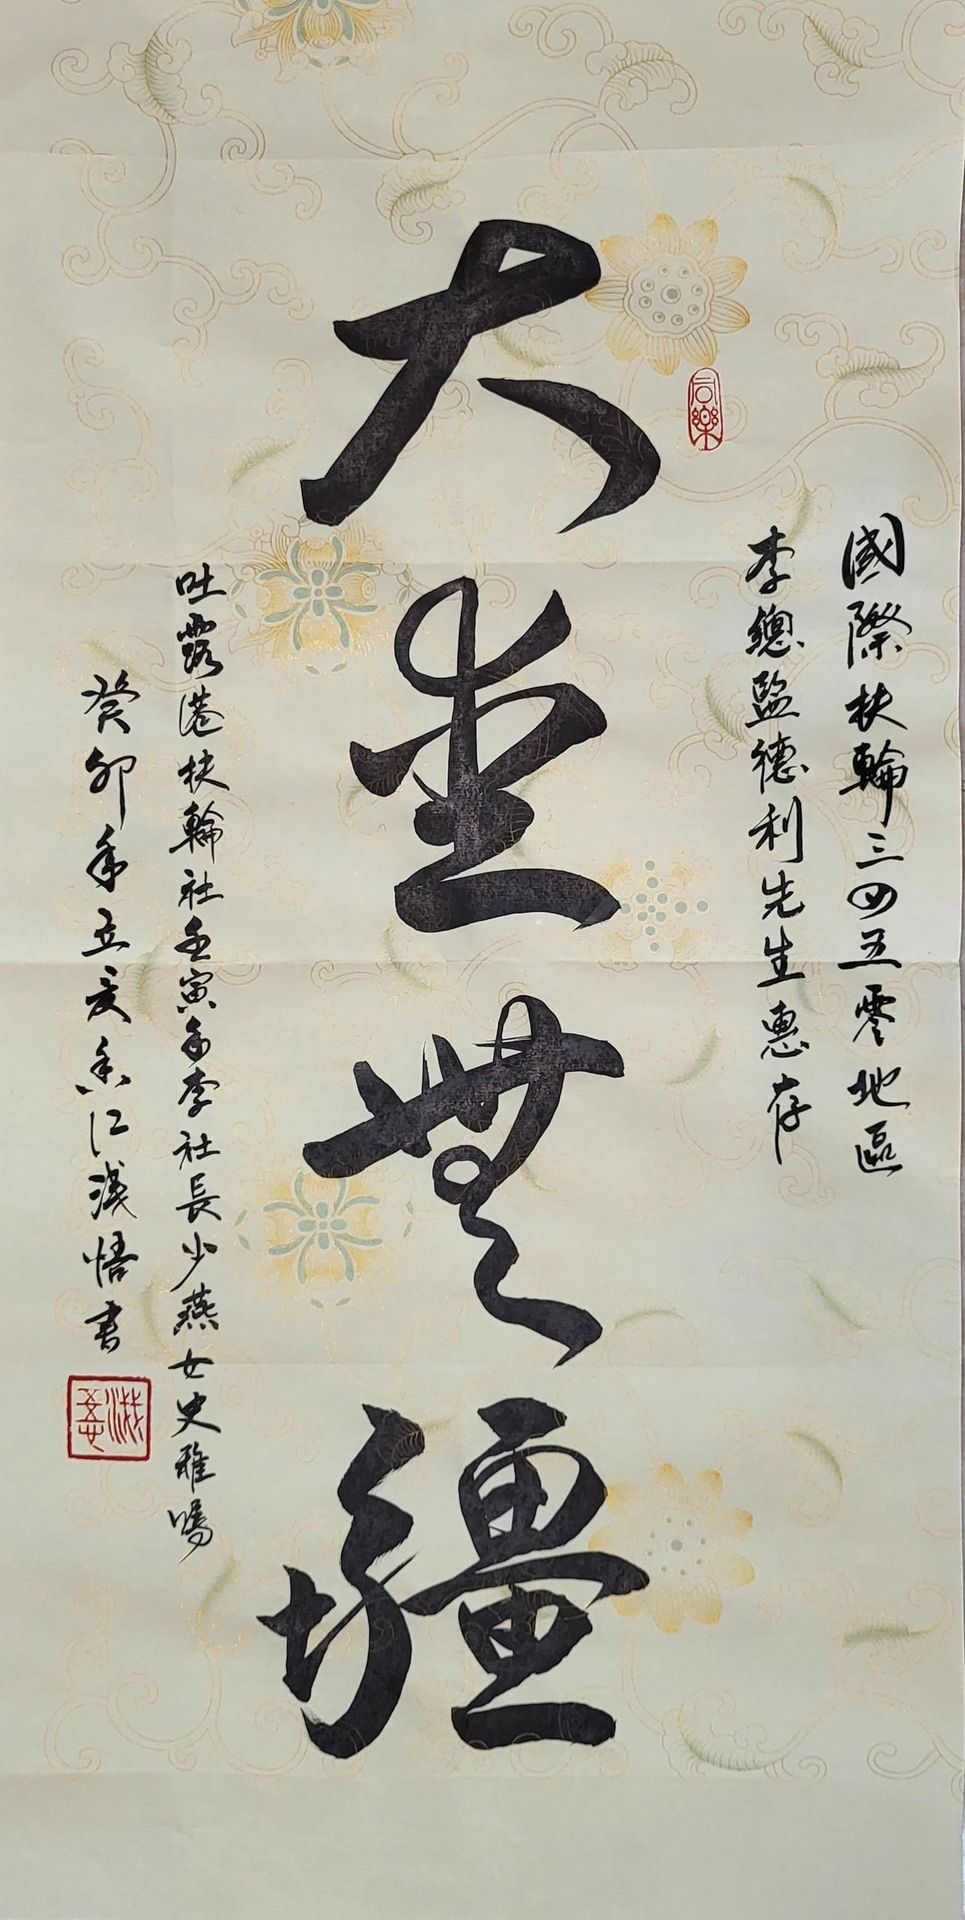 國際扶輪三四五零地區
李總監德利先生惠存
同樂
大愛無疆
吐露港扶輪社壬寅年李社長少燕女史雅囑
癸卯年立夏香江淺悟書